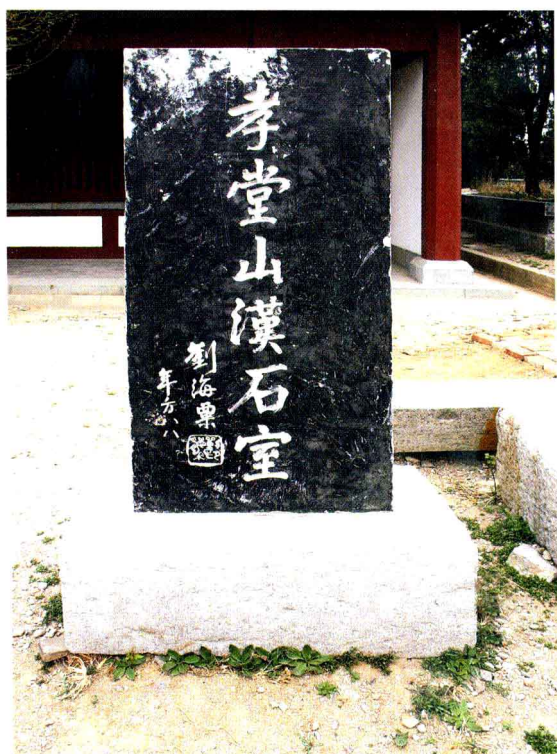 孝堂山漢石室
劉海粟
年方八八